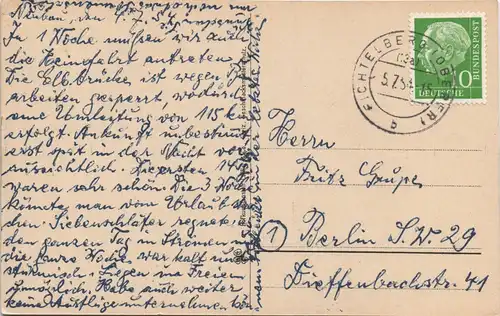 Neubau, den 4.7.54
In 1 Woche müssen wir auch
die Heimfahrt antreten.
Die Elb.Brücke ist wegen
arbeiten gesperrt, wodurch
eine Umleitung von 115 km
erfolgt. Ankunft unbestimmt
erst spät in der Nacht vor
aussichtlich. Die ersten 14
waren sehr schön. Die 3 Woche
könnte man vom Urlaub
chen. Siebenschläfer regnete
den ganzen Tag in Strömen
die ganze Woche war kalt und
stürmisch. Liegen im Freien
unmöglich. Habe auch weiter
keine Ausflüge unternehmen kön
FICHTELBERG (OBERFR)
5.7.54-15
a
DEUTSCHE BUNDESPOST
10
Herrn
Fritz Grupe
1 Berlin S.W. 29
Dieffenbachstr. 41